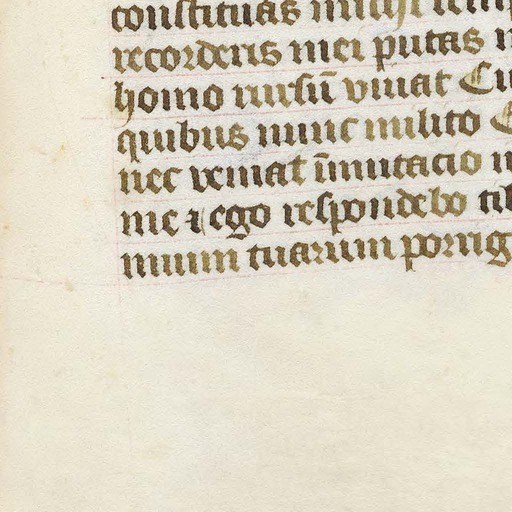 constituas michi temp
recorderis mei putas m
homo rursū vivat Cu
quibus nunc milito
nec veniat īmutacio m
me ⁊ ego respondebo tib
nuum tuarum porrig